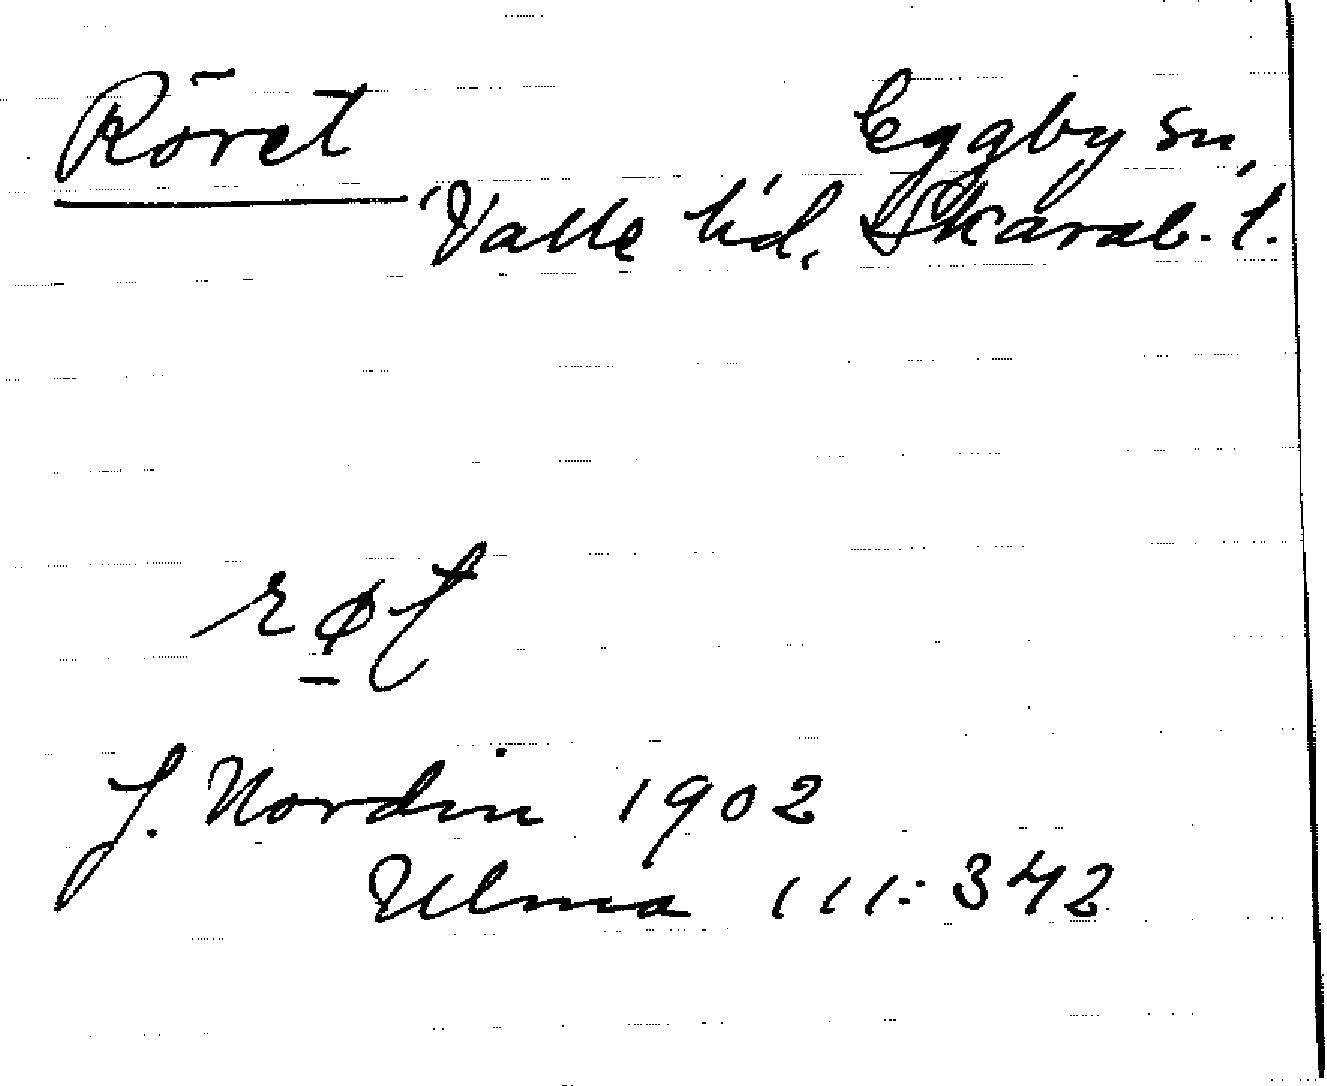 Röret Eggby sn,
Valle hd, Skarab. l.
rø̱t
J. Nordin 1902
Ulma 111:342